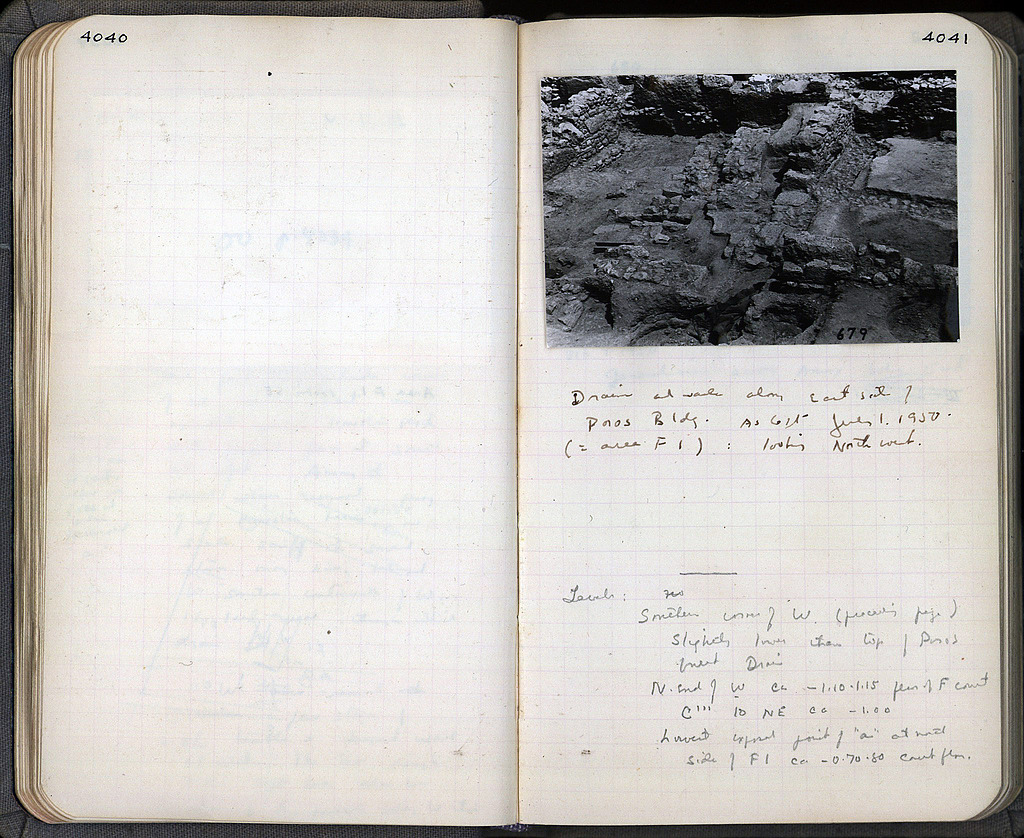 4040
4041
679
Drain at walls along East side of
Poros Bldg. As left July 1. 1950.
(= area F 1) : looking North west.
Levels:
Southern corner of W. (preceding page)
Slightly lower than top of Poros
Great Drain
N. end of W ca -1.10-1.15 floor of F court
C''' to NE ca -1.00
Lowest exposed point of "a" at north
side of F1 ca -0.70-80 court floor.